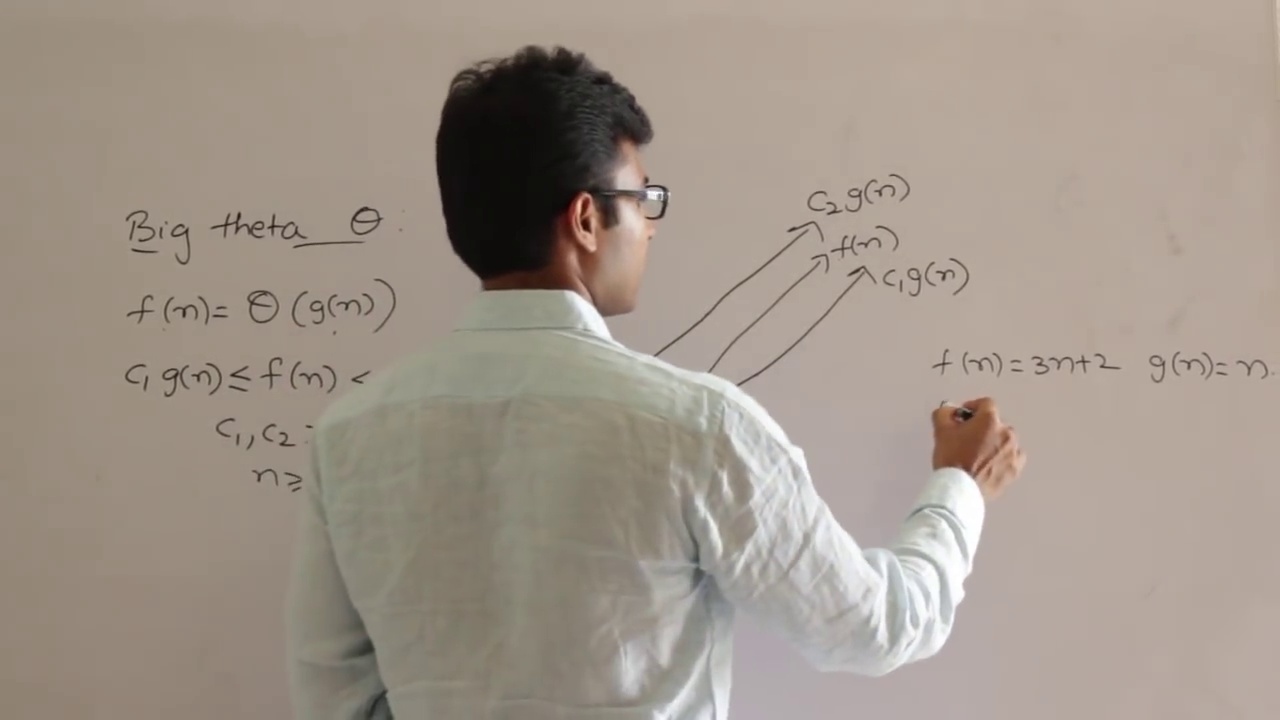 Big theta Θ :
f(n) = Θ (g(n))
c₁ g(n) ≤ f(n) <
c₁, c₂ :
n ≥
c₂ g(n)
f(n)
c₁ g(n)
f(n) = 3n+2 g(n) = n.